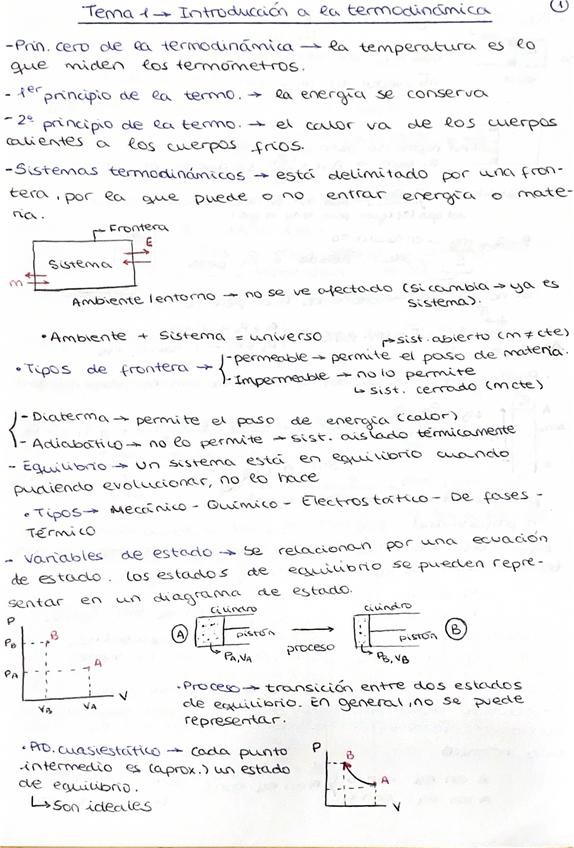 Tema 1 → Introducción a la termodinámica
1
-Prin. cero de la termodinámica → la temperatura es lo
que miden los termómetros.
- 1er principio de la termo. → la energía se conserva
- 2º principio de la termo. → el calor va de los cuerpos
calientes a los cuerpos fríos.
-Sistemas termodinámicos → está delimitado por una fron-
tera, por la que puede o no entrar energía o mate-
ria.
Frontera
E
Sistema
m
Ambiente/entorno → no se ve afectado (si cambia → ya es
sistema).
• Ambiente + Sistema = universo
sist. abierto (m ≠ cte)
• Tipos de frontera → - permeable → permite el paso de materia.
- Impermeable → no lo permite
↳ sist. cerrado (m cte)
- Diaterma → permite el paso de energía (calor)
- Adiabático → no lo permite → sist. aislado térmicamente
- Equilibrio → Un sistema está en equilibrio cuando
pudiendo evolucionar, no lo hace
• Tipos → Mecánico - Químico - Electrostático - De fases -
Térmico
- Variables de estado → Se relacionan por una ecuación
de estado. Los estados de equilibrio se pueden repre-
sentar en un diagrama de estado.
P
PB
B
PA
A
VB
VA
V
cilindro
A
pistón
PA, VA
proceso
cilindro
pistón
B
PB, VB
• Proceso → transición entre dos estados
de equilibrio. En general, no se puede
representar.
• PrO. cuasiestático → Cada punto
intermedio es (aprox.) un estado
de equilibrio.
↳ Son ideales
P
B
A
V